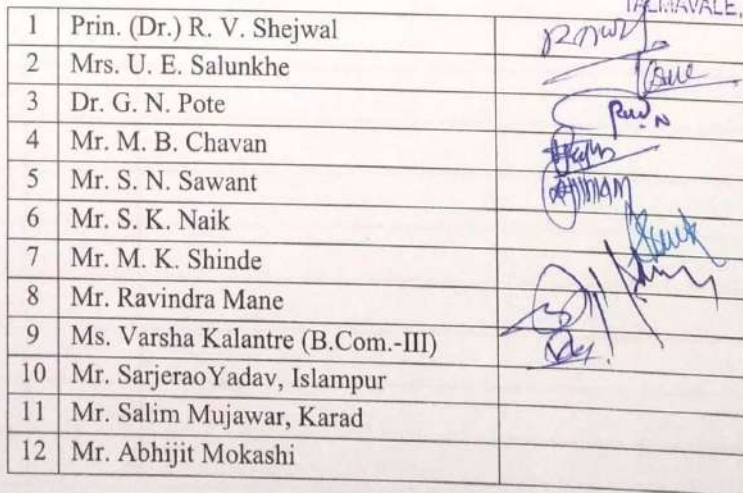 TALMAVALE,
1 Prin. (Dr.) R. V. Shejwal
2 Mrs. U. E. Salunkhe
3 Dr. G. N. Pote
4 Mr. M. B. Chavan
5 Mr. S. N. Sawant
6 Mr. S. K. Naik
7 Mr. M. K. Shinde
8 Mr. Ravindra Mane
9 Ms. Varsha Kalantre (B.Com.-III)
10 Mr. SarjeraoYadav, Islampur
11 Mr. Salim Mujawar, Karad
12 Mr. Abhijit Mokashi